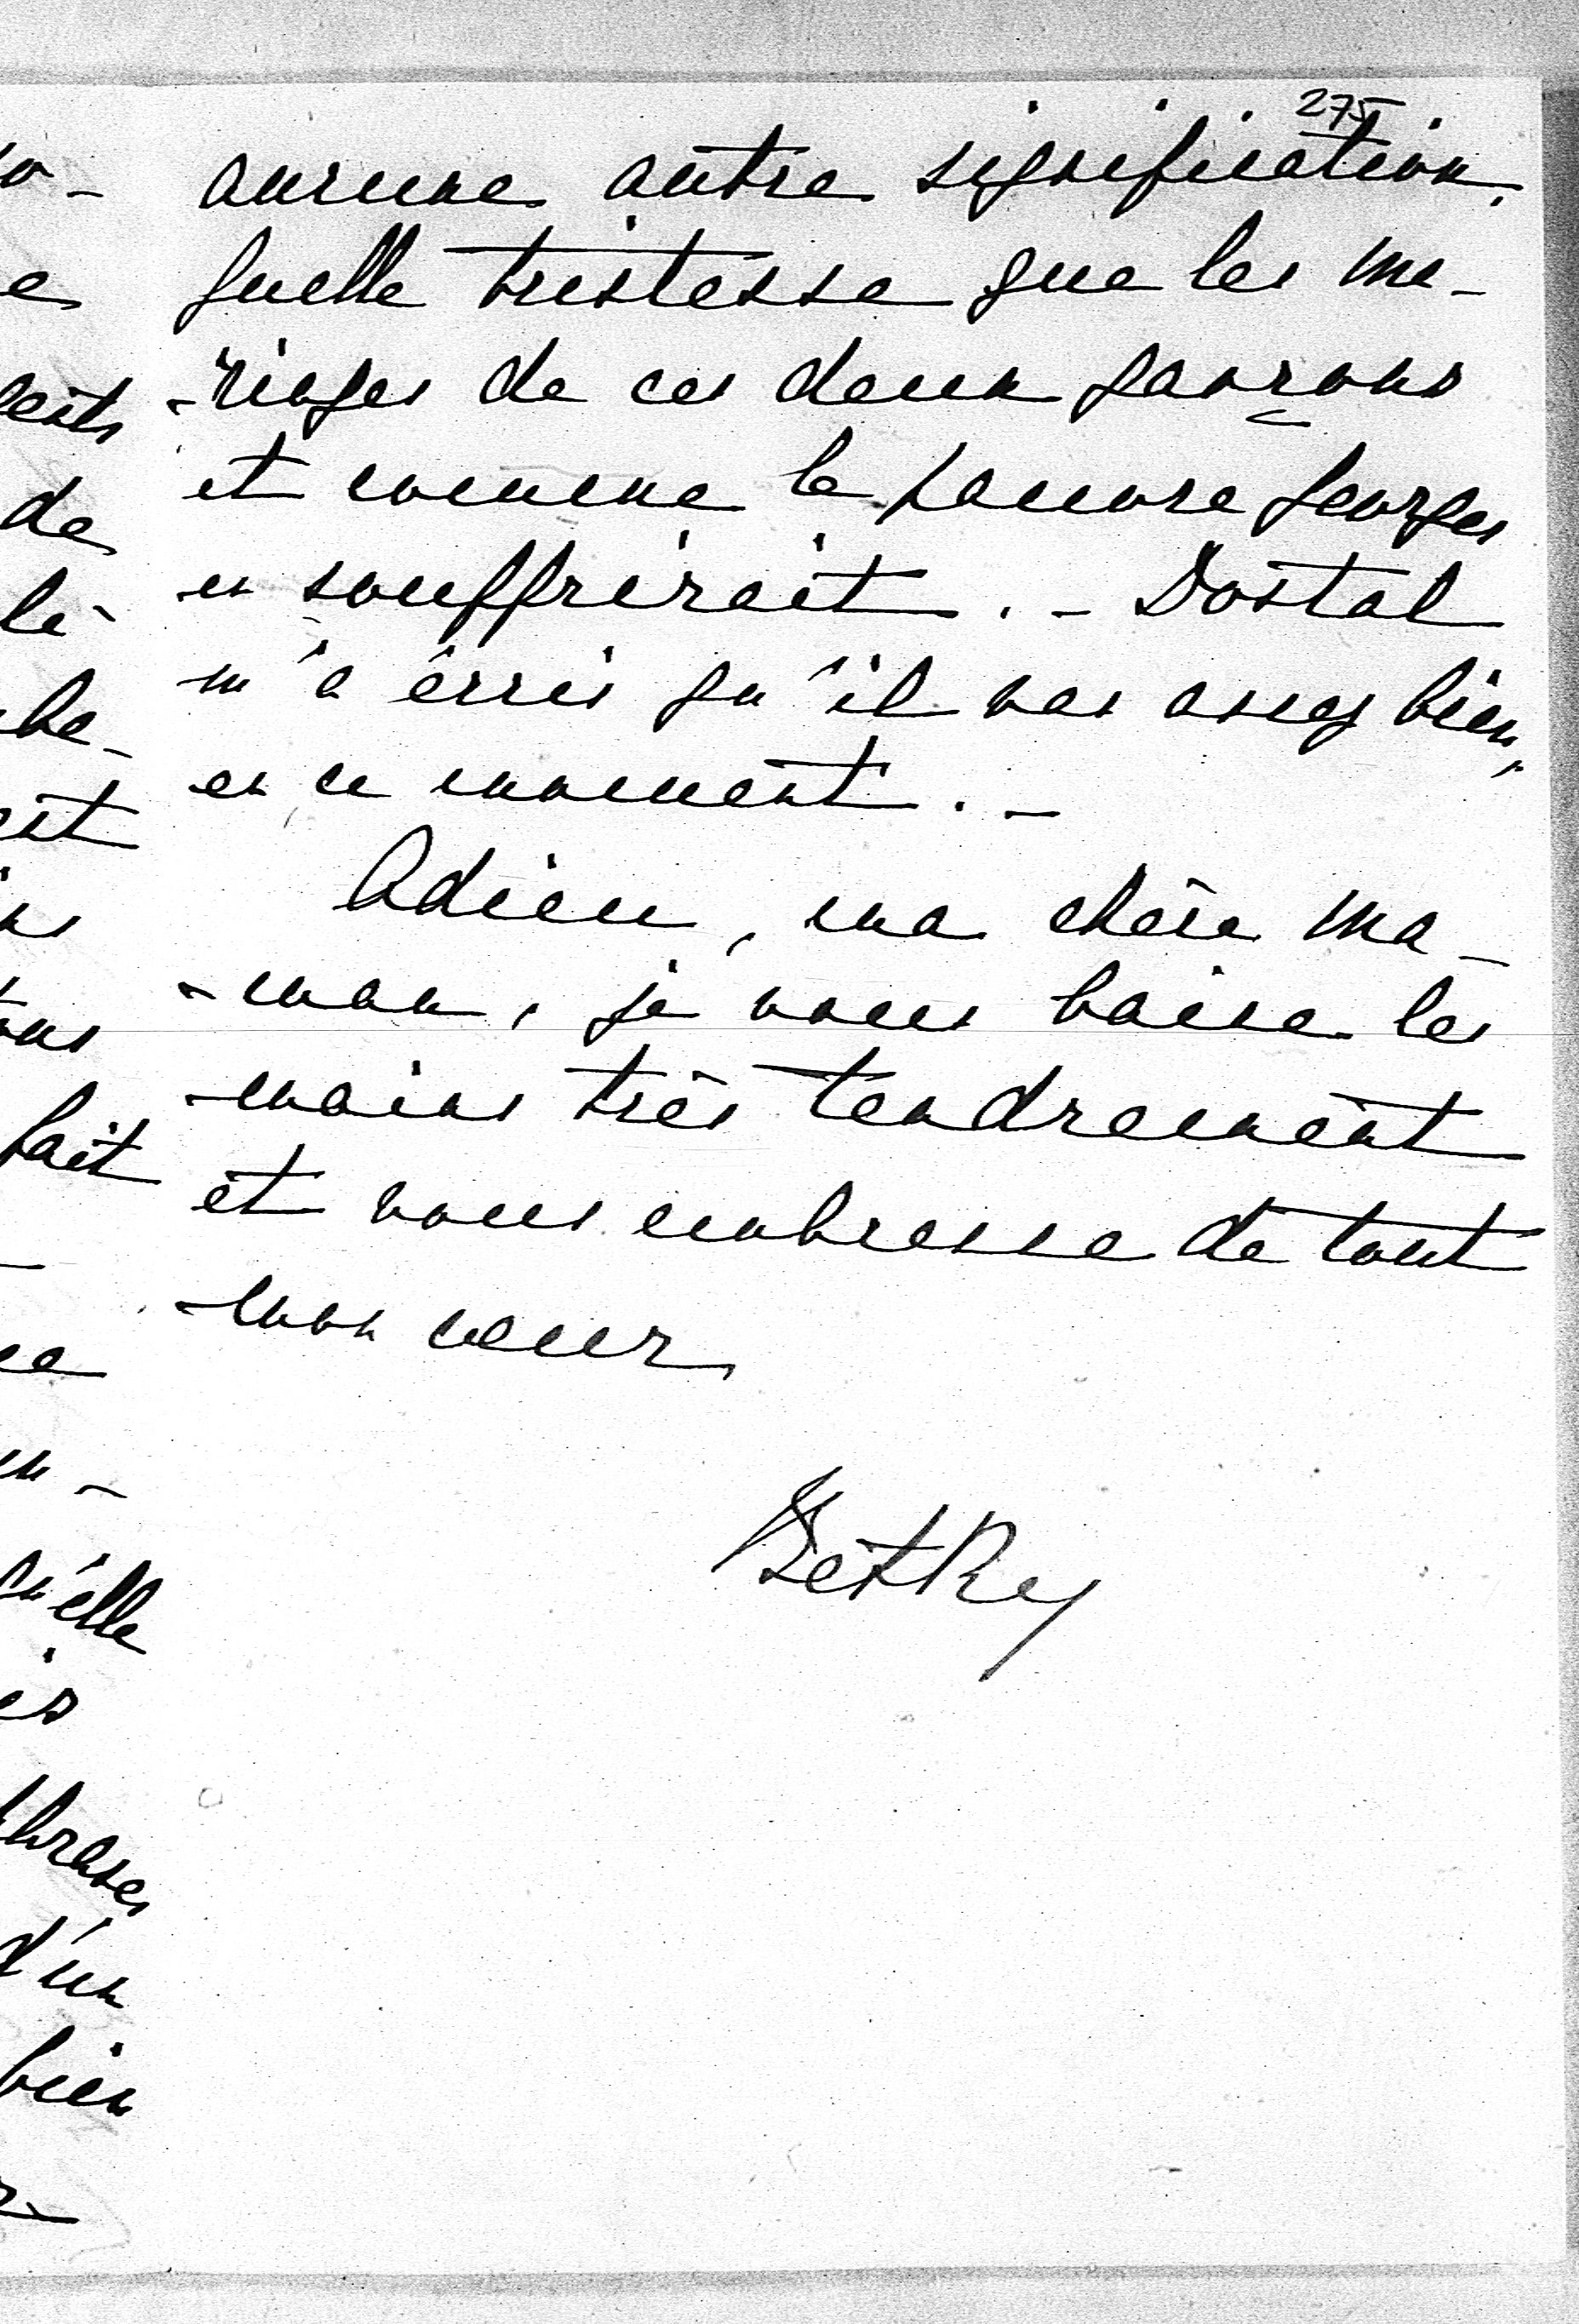 275
aucune autre signification.
Quelle tristesse que les ma-
-riages de ces deux garçons
et comme le pauvre Georges
en souffrirait. - Dostal
m'a écris qu'il vas assez bien,
en ce moment. -
Adieu, ma chère ma-
-man, je vous baise les
-mains très tendrement
et vous embrasse de tout
-mon cœur,
de
lé-
fait
qu'elle
phrases
d'un
bien